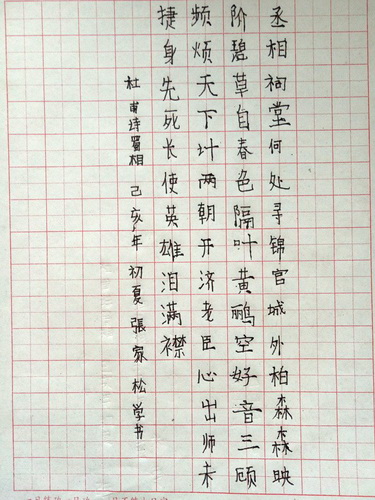 丞相祠堂何处寻锦官城外柏森森映
阶碧草自春色隔叶黄鹂空好音三顾
频烦天下计两朝开济老臣心出师未
捷身先死长使英雄泪满襟
杜甫诗蜀相己亥年初夏張家松学书